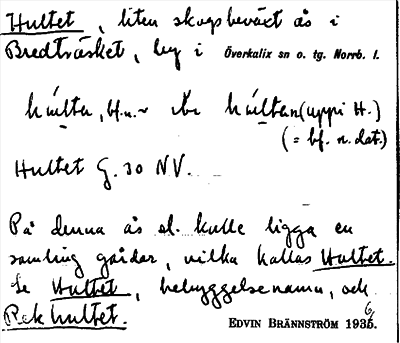 Hultet, liten skogsbeväxt ås i
Bredträsket, by i Överkalix sn o. tg. Norrb. l.
hulta, bf.n. ~ hultan (uppi H.)
(= bf. n. dat.)
Hultet G. 30 NV.
På denna ås el. kulle ligga en
samling gårdar, vilka kallas Hultet.
Se Hultet, bebyggelsenamn, och
Rekhultet.
EDVIN BRÄNNSTRÖM 1936.